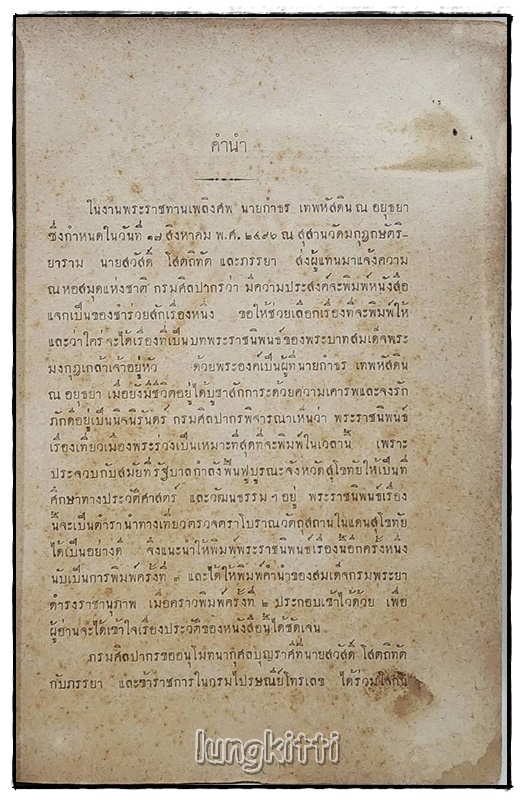 คำนำ
ในงานพระราชทานเพลิงศพ นายกำธร เทพหัสดิน ณ อยุธยา
ซึ่งกำหนดในวันที่ ๑๗ สิงหาคม พ.ศ. ๒๔๙๖ ณ สุสานวัดมกุฎกษัตริ-
ยาราม นายสวัสดิ์ โสตถิทัต และภรรยา ส่งผู้แทนมาแจ้งความ
ณ หอสมุดแห่งชาติ กรมศิลปากรว่า มีความประสงค์จะพิมพ์หนังสือ
แจกเป็นของชำร่วยสักเรื่องหนึ่ง ขอให้ช่วยเลือกเรื่องที่จะพิมพ์ให้
และว่าใคร่จะได้เรื่องที่เป็นบทพระราชนิพนธ์ของพระบาทสมเด็จพระ
มงกุฎเกล้าเจ้าอยู่หัว ด้วยพระองค์เป็นผู้ที่นายกำธร เทพหัสดิน
ณ อยุธยา เมื่อยังมีชีวิตอยู่ได้บูชาสักการะด้วยความเคารพและจงรัก
ภักดีอยู่เป็นนิจนิรันดร์ กรมศิลปากรพิจารณาเห็นว่า พระราชนิพนธ์
เรื่องเที่ยวเมืองพระร่วงเป็นเหมาะที่สุดที่จะพิมพ์ในเวลานี้ เพราะ
ประจวบกับสมัยที่รัฐบาลกำลังฟื้นฟูบูรณะจังหวัดสุโขทัยให้เป็นที่
ศึกษาทางประวัติศาสตร์ และวัฒนธรรม ฯ อยู่ พระราชนิพนธ์เรื่อง
นี้จะเป็นตำรานำทางเที่ยวตรวจตราโบราณวัตถุสถานในแดนสุโขทัย
ได้เป็นอย่างดี จึงแนะนำให้พิมพ์พระราชนิพนธ์เรื่องนี้อีกครั้งหนึ่ง
นับเป็นการพิมพ์ครั้งที่ และได้ให้พิมพ์คำนำของสมเด็จกรมพระยา
ดำรงราชานุภาพ เมื่อคราวพิมพ์ครั้งที่ ๒ ประกอบเข้าไว้ด้วย เพื่อ
ผู้อ่านจะได้เข้าใจเรื่องประวัติของหนังสือนี้ได้ชัดเจน
กรมศิลปากรขออนุโมทนากุศลบุญราศีที่นายสวัสดิ์ โสตถิทัต
กับภรรยา และข้าราชการในกรมไปรษณีย์โทรเลข ได้ร่วมใจกัน
lungkitti